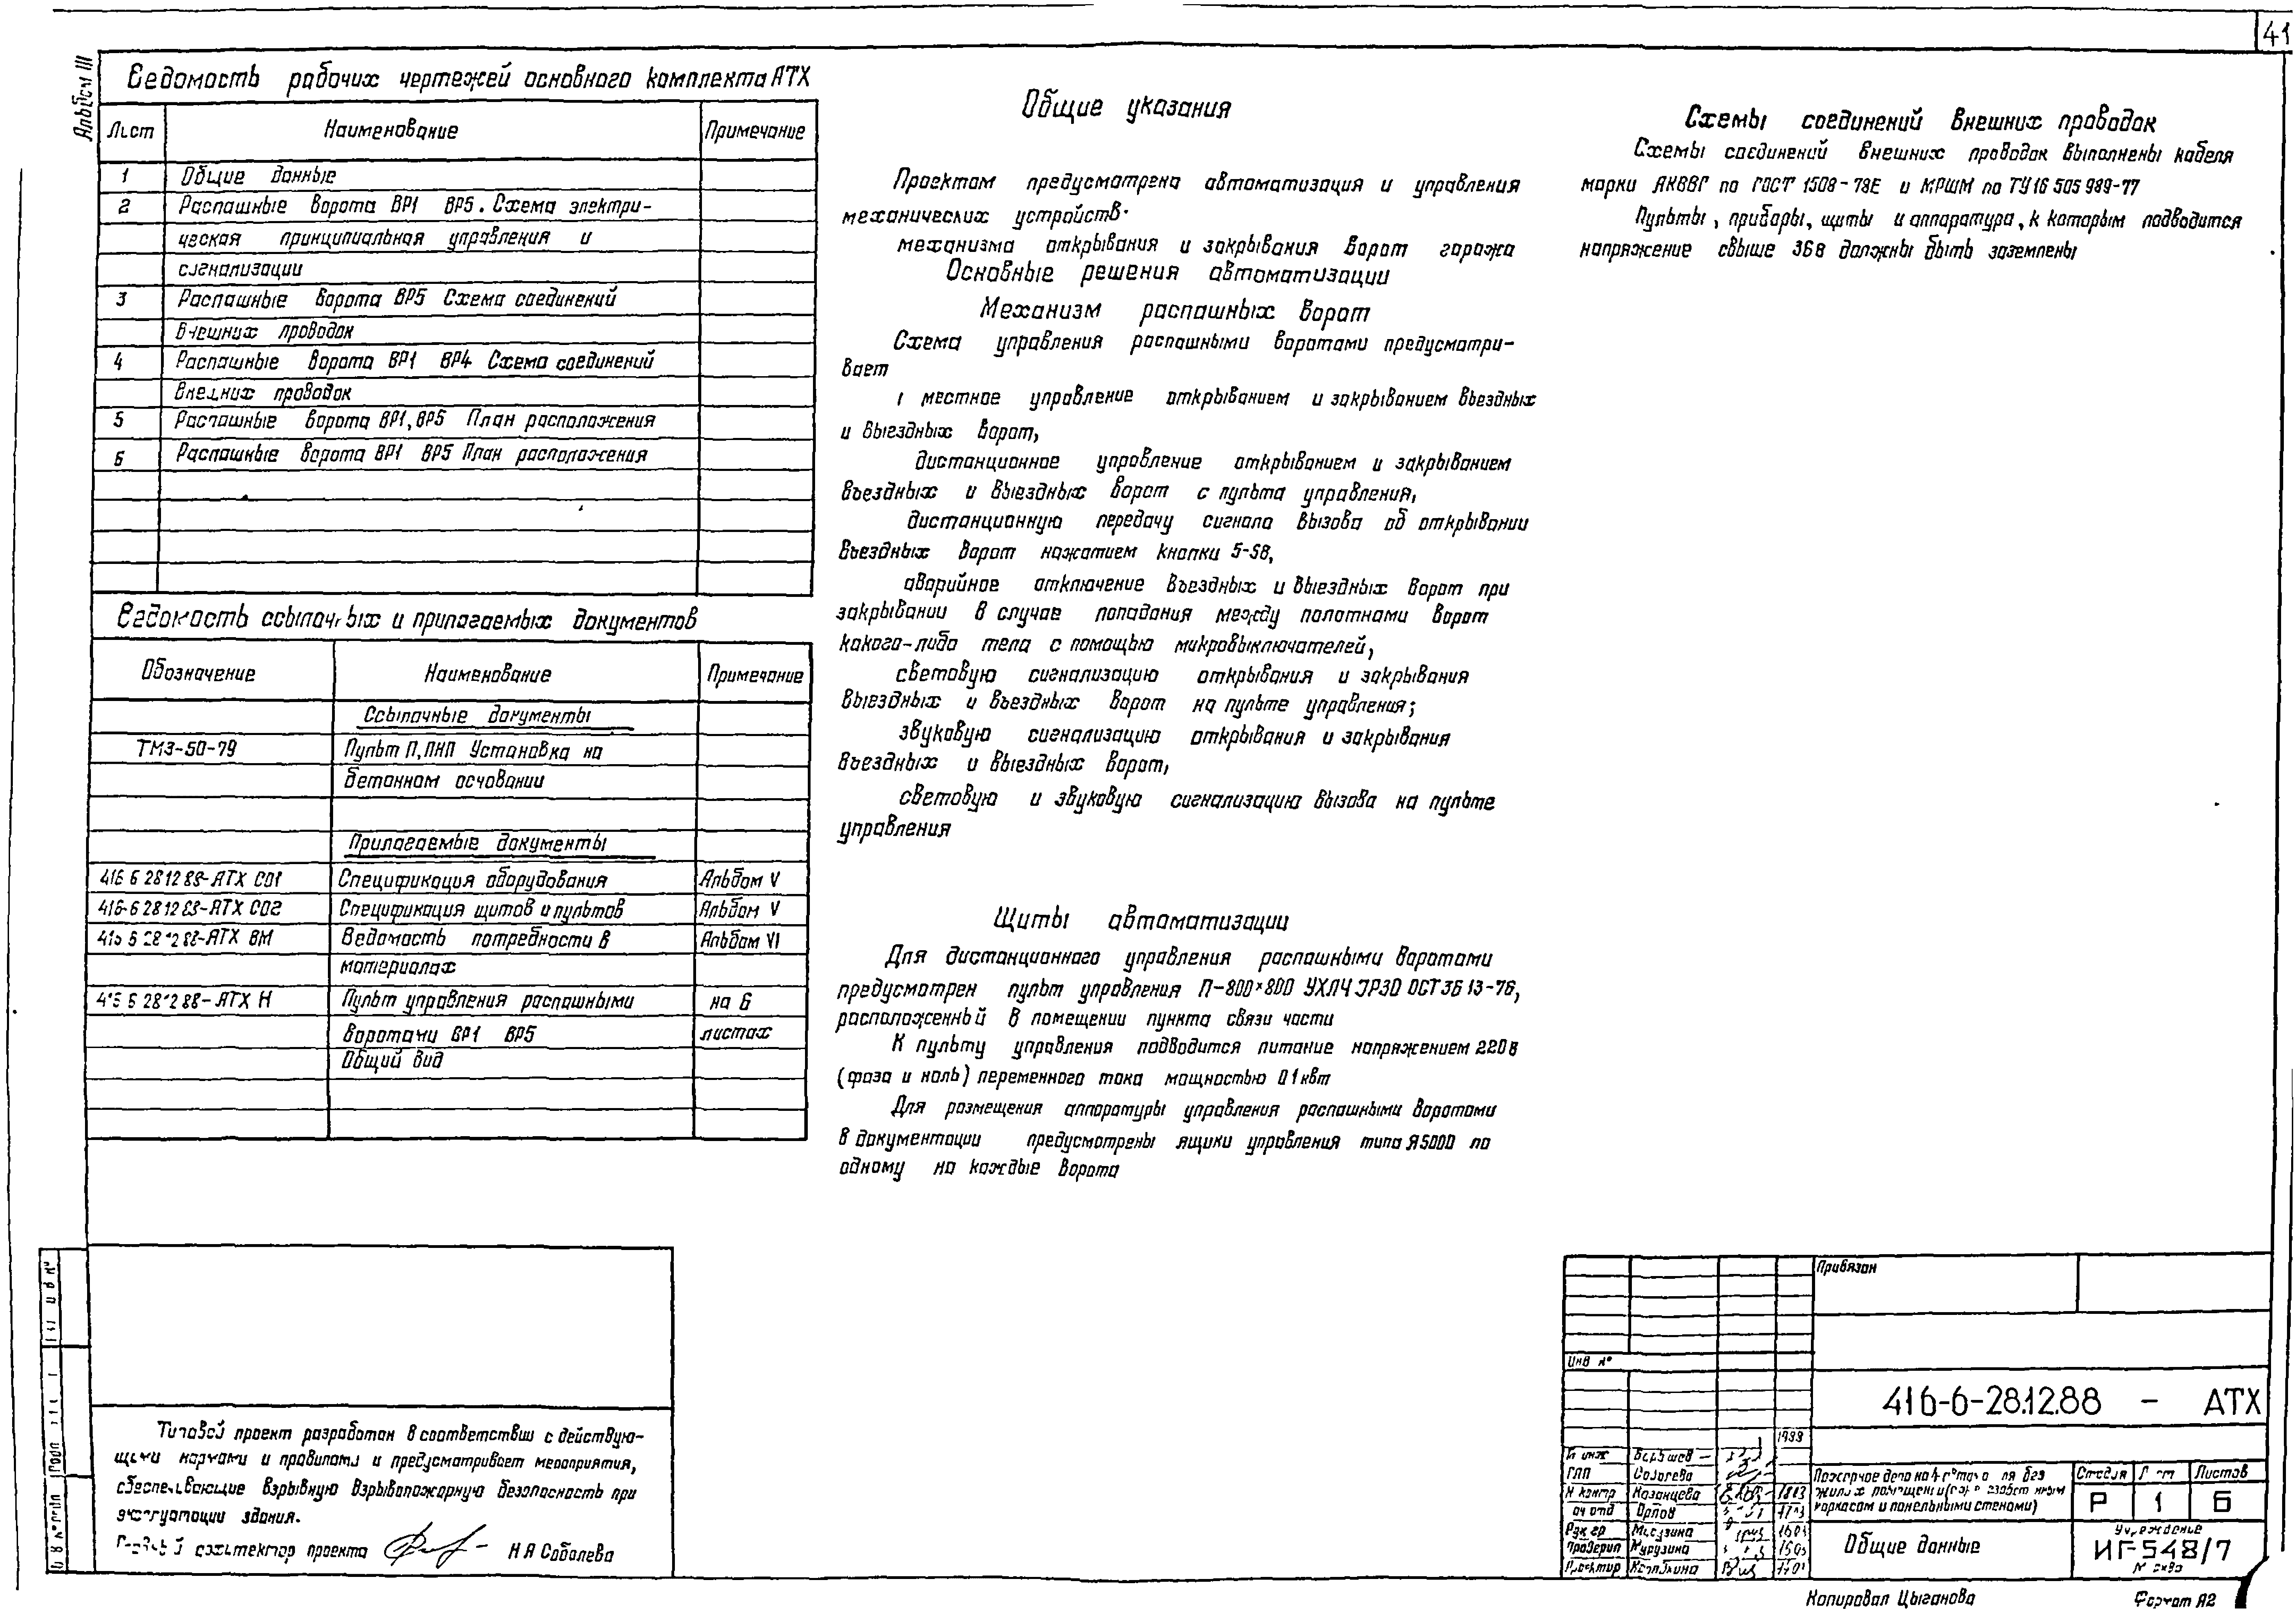 41
Альбом III
Ведомость рабочих чертежей основного комплекта АТХ
Лист Наименование Примечание
1 Общие данные
2 Распашные ворота ВР1 ВР5. Схема электри-
ческая принципиальная управления и
сигнализации
3 Распашные ворота ВР5 Схема соединений
внешних проводок
4 Распашные ворота ВР1 ВР4 Схема соединений
внешних проводок
5 Распашные ворота ВР1, ВР5 План расположения
6 Распашные ворота ВР1 ВР5 План расположения
Ведомость ссылочных и прилагаемых документов
Обозначение Наименование Примечание
Ссылочные документы
ТМ3-50-79 Пульт П, ПНП Установка на
бетонном основании
Прилагаемые документы
416 6 28 12 88-АТХ СО1 Спецификация оборудования Альбом V
416-6 28 12 88-АТХ СО2 Спецификация щитов и пультов Альбом V
416 6 28 12 88-АТХ ВМ Ведомость потребности в Альбом VI
материалах
416 6 28 12 88-АТХ Н Пульт управления распашными на 6
воротами ВР1 ВР5 листах
Общий вид
Общие указания
Проектом предусмотрена автоматизация и управления
механических устройств.
механизма открывания и закрывания ворот гаража
Основные решения автоматизации
Механизм распашных ворот
Схема управления распашными воротами предусматри-
вает
1 местное управление открыванием и закрыванием въездных
и выездных ворот,
дистанционное управление открыванием и закрыванием
въездных и выездных ворот с пульта управления,
дистанционную передачу сигнала вызова об открывании
въездных ворот нажатием кнопки 5-SB,
аварийное отключение въездных и выездных ворот при
закрывании в случае попадания между полотнами ворот
какого-либо тела с помощью микровыключателей,
световую сигнализацию открывания и закрывания
выездных и въездных ворот на пульте управления;
звуковую сигнализацию открывания и закрывания
въездных и выездных ворот,
световую и звуковую сигнализацию вызова на пульте
управления
Щиты автоматизации
Для дистанционного управления распашными воротами
предусмотрен пульт управления П-800×800 УХЛ4 JP30 ОСТ 36 13-76,
расположенный в помещении пункта связи части
К пульту управления подводится питание напряжением 220в
(фаза и ноль) переменного тока мощностью 0 1 квт
Для размещения аппаратуры управления распашными воротами
в документации предусмотрены ящики управления типа Я5000 по
одному на каждые ворота
Схемы соединений внешних проводок
Схемы соединений внешних проводок выполнены кабеля
марки АКВВГ по ГОСТ 1508-78Е и МРШМ по ТУ16 505 989-77
Пульты, приборы, щиты и аппаратура, к которым подводится
напряжение свыше 36в должны быть заземлены
Типовой проект разработан в соответствии с действую-
щими нормами и правилами и предусматривает мероприятия,
обеспечивающие взрывную взрывопожарную безопасность при
эксплуатации здания.
Главный архитектор проекта Н А Соболева
Привязан
Инв №
416-6-28.12.88 - АТХ
1988
Гл инж
ГАП Соболева
Н контр Казанцева
Нач отд Орлов
Рук гр
Проверил
Проектир
Пожарное депо на 4 автомобиля без
жилых помещений
каркасом и панельными стенами)
Стадия Лист Листов
Р 1 6
Общие данные
Учреждение
ИГ-548/7
Копировал Цыганова
Формат А2